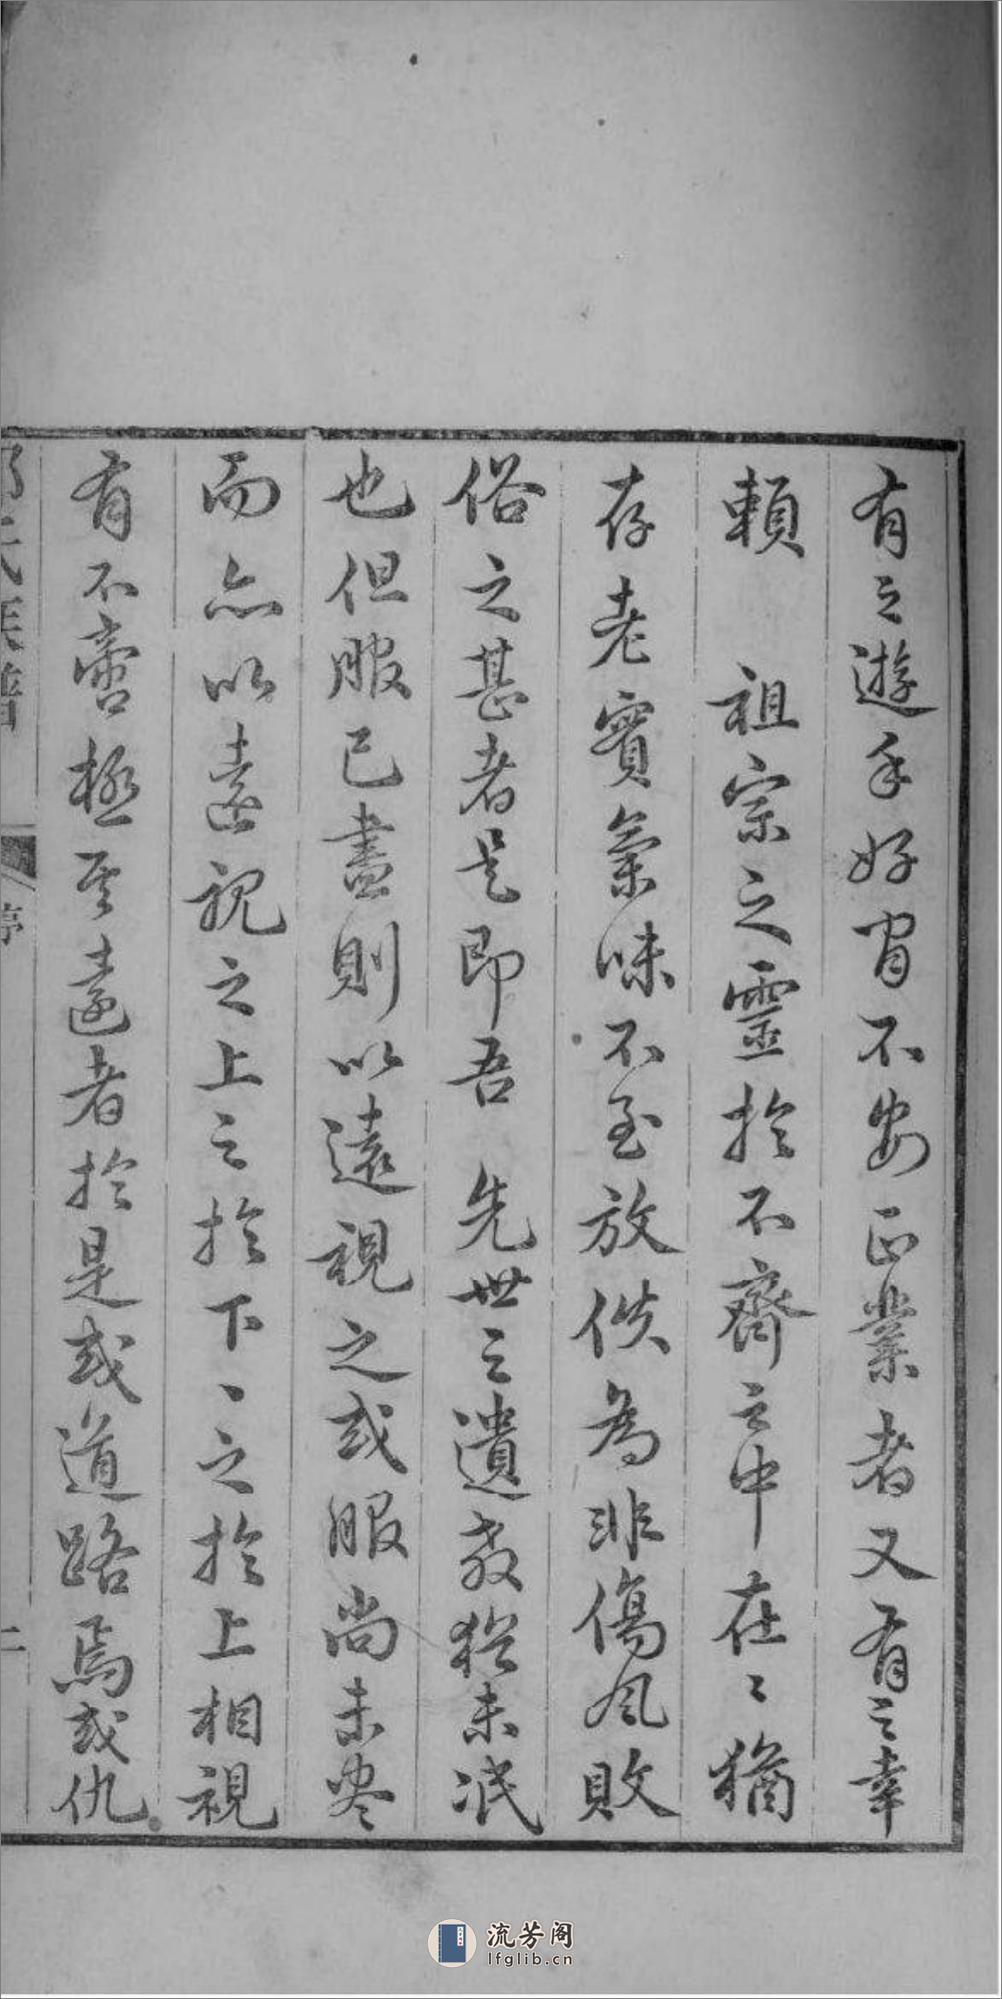 有之遊手好閒不安正業者又有之幸
賴　祖宗之靈於不齊之中在〻猶
存老實氣味不至放佚為非傷風敗
俗之甚者是即吾　先世之遺教猶未泯
也但服已盡則以遠視之或服尚未尽
而亦以遠視之上之於下〻之於上相視
有不啻極其遠者於是或道路焉或仇
氏族譜
序
流芳阁
lfglib.cn